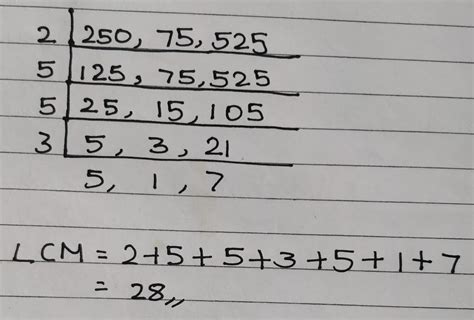 2 | 250, 75, 525
5 | 125, 75, 525
5 | 25, 15, 105
3 | 5, 3, 21
5, 1, 7
LCM = 2+5+5+3+5+1+7
= 28,,